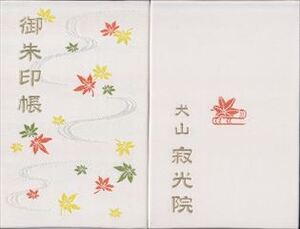 御朱印帳
犬山 寂光院